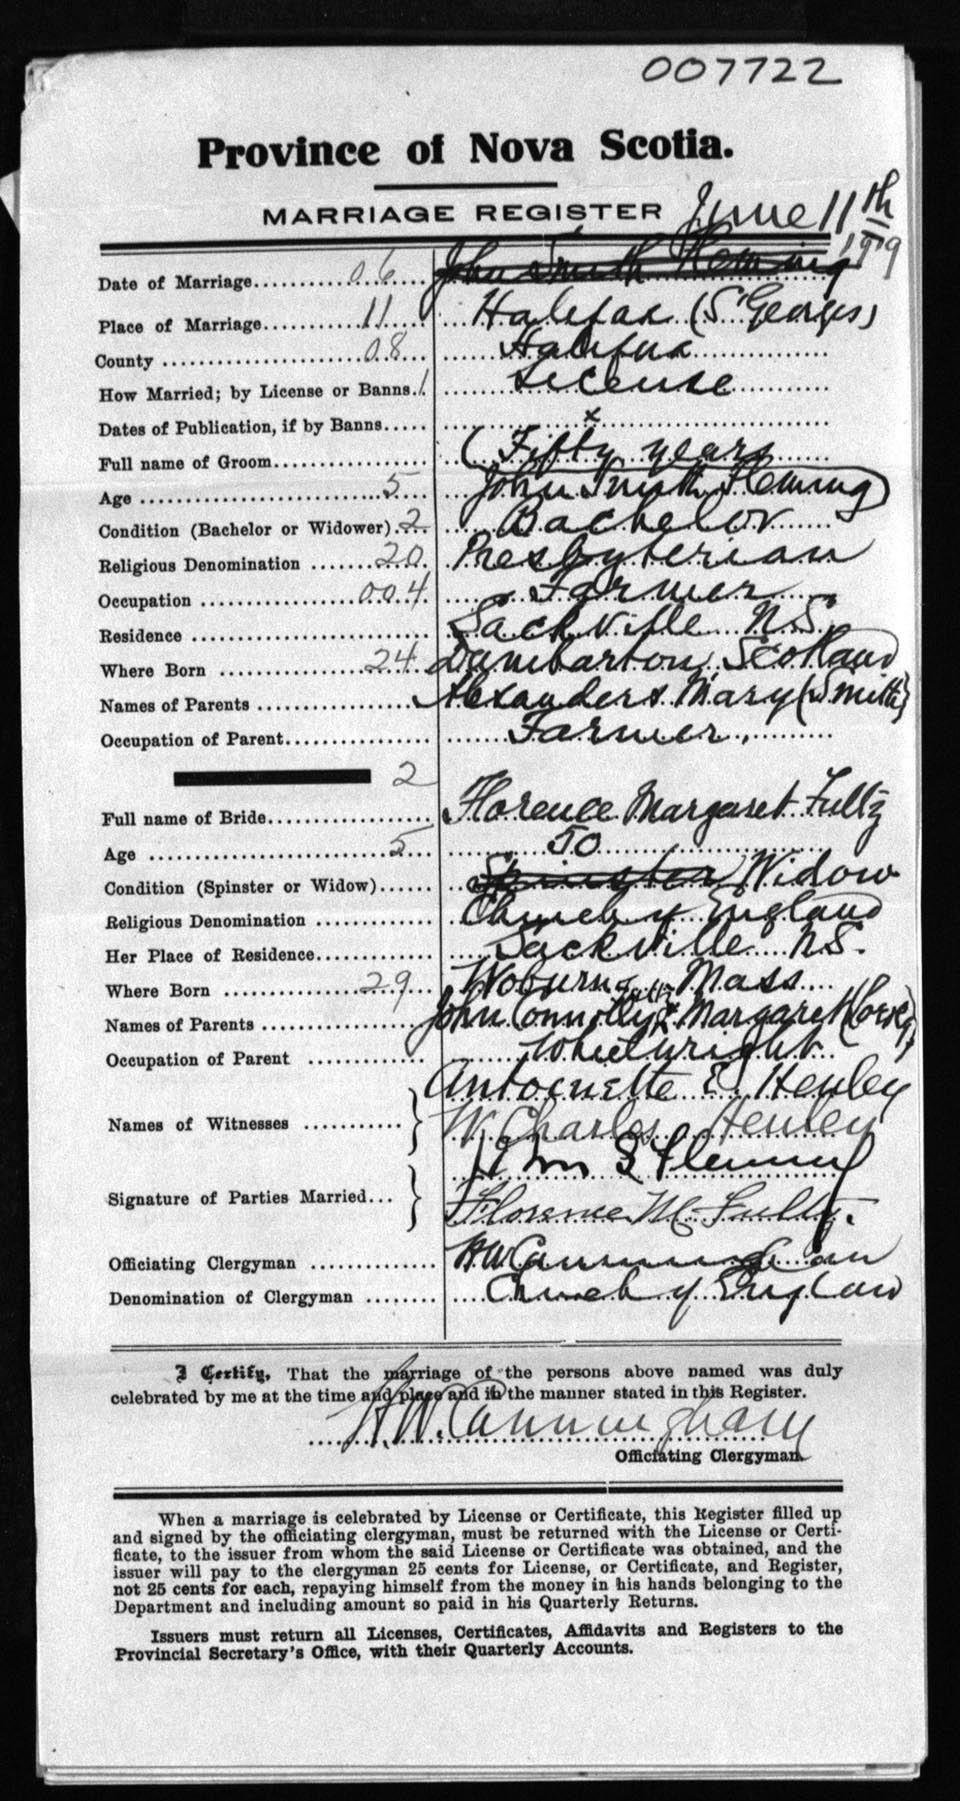 007722
Province of Nova Scotia.
MARRIAGE REGISTER June 11th
1919
Date of Marriage 06 John Smith Fleming
Place of Marriage 11 Halifax (St Georges)
County 08 Halifax
How Married; by License or Banns 1 License
Dates of Publication, if by Banns x
Full name of Groom (Fifty years
Age 5 John Smith Fleming)
Condition (Bachelor or Widower) 2 Bachelor
Religious Denomination 20 Presbyterian
Occupation 004 Farmer
Residence Sackville N.S.
Where Born 24 Dumbarton, Scotland
Names of Parents Alexander & Mary (Smith)
Occupation of Parent Farmer.
2
Full name of Bride Florence Margaret Fultz
Age 5 50
Condition (Spinster or Widow) Spinster Widow
Religious Denomination Church of England
Her Place of Residence Sackville N.S.
Where Born 29 Woburn, Mass
Names of Parents John Connolly & Margaret
Occupation of Parent Wheelwright
Names of Witnesses Antoinette E. Henley
W. Charles Henley
Signature of Parties Married John S Fleming
Florence M. Fultz.
Officiating Clergyman H W Cunningham
Denomination of Clergyman Church of England
I Certify, That the marriage of the persons above named was duly
celebrated by me at the time and place and in the manner stated in this Register.
H. W. Cunningham
Officiating Clergyman
When a marriage is celebrated by License or Certificate, this Register filled up
and signed by the officiating clergyman, must be returned with the License or Certi-
ficate, to the issuer from whom the said License or Certificate was obtained, and the
issuer will pay to the clergyman 25 cents for License, or Certificate, and Register,
not 25 cents for each, repaying himself from the money in his hands belonging to the
Department and including amount so paid in his Quarterly Returns.
Issuers must return all Licenses, Certificates, Affidavits and Registers to the
Provincial Secretary's Office, with their Quarterly Accounts.